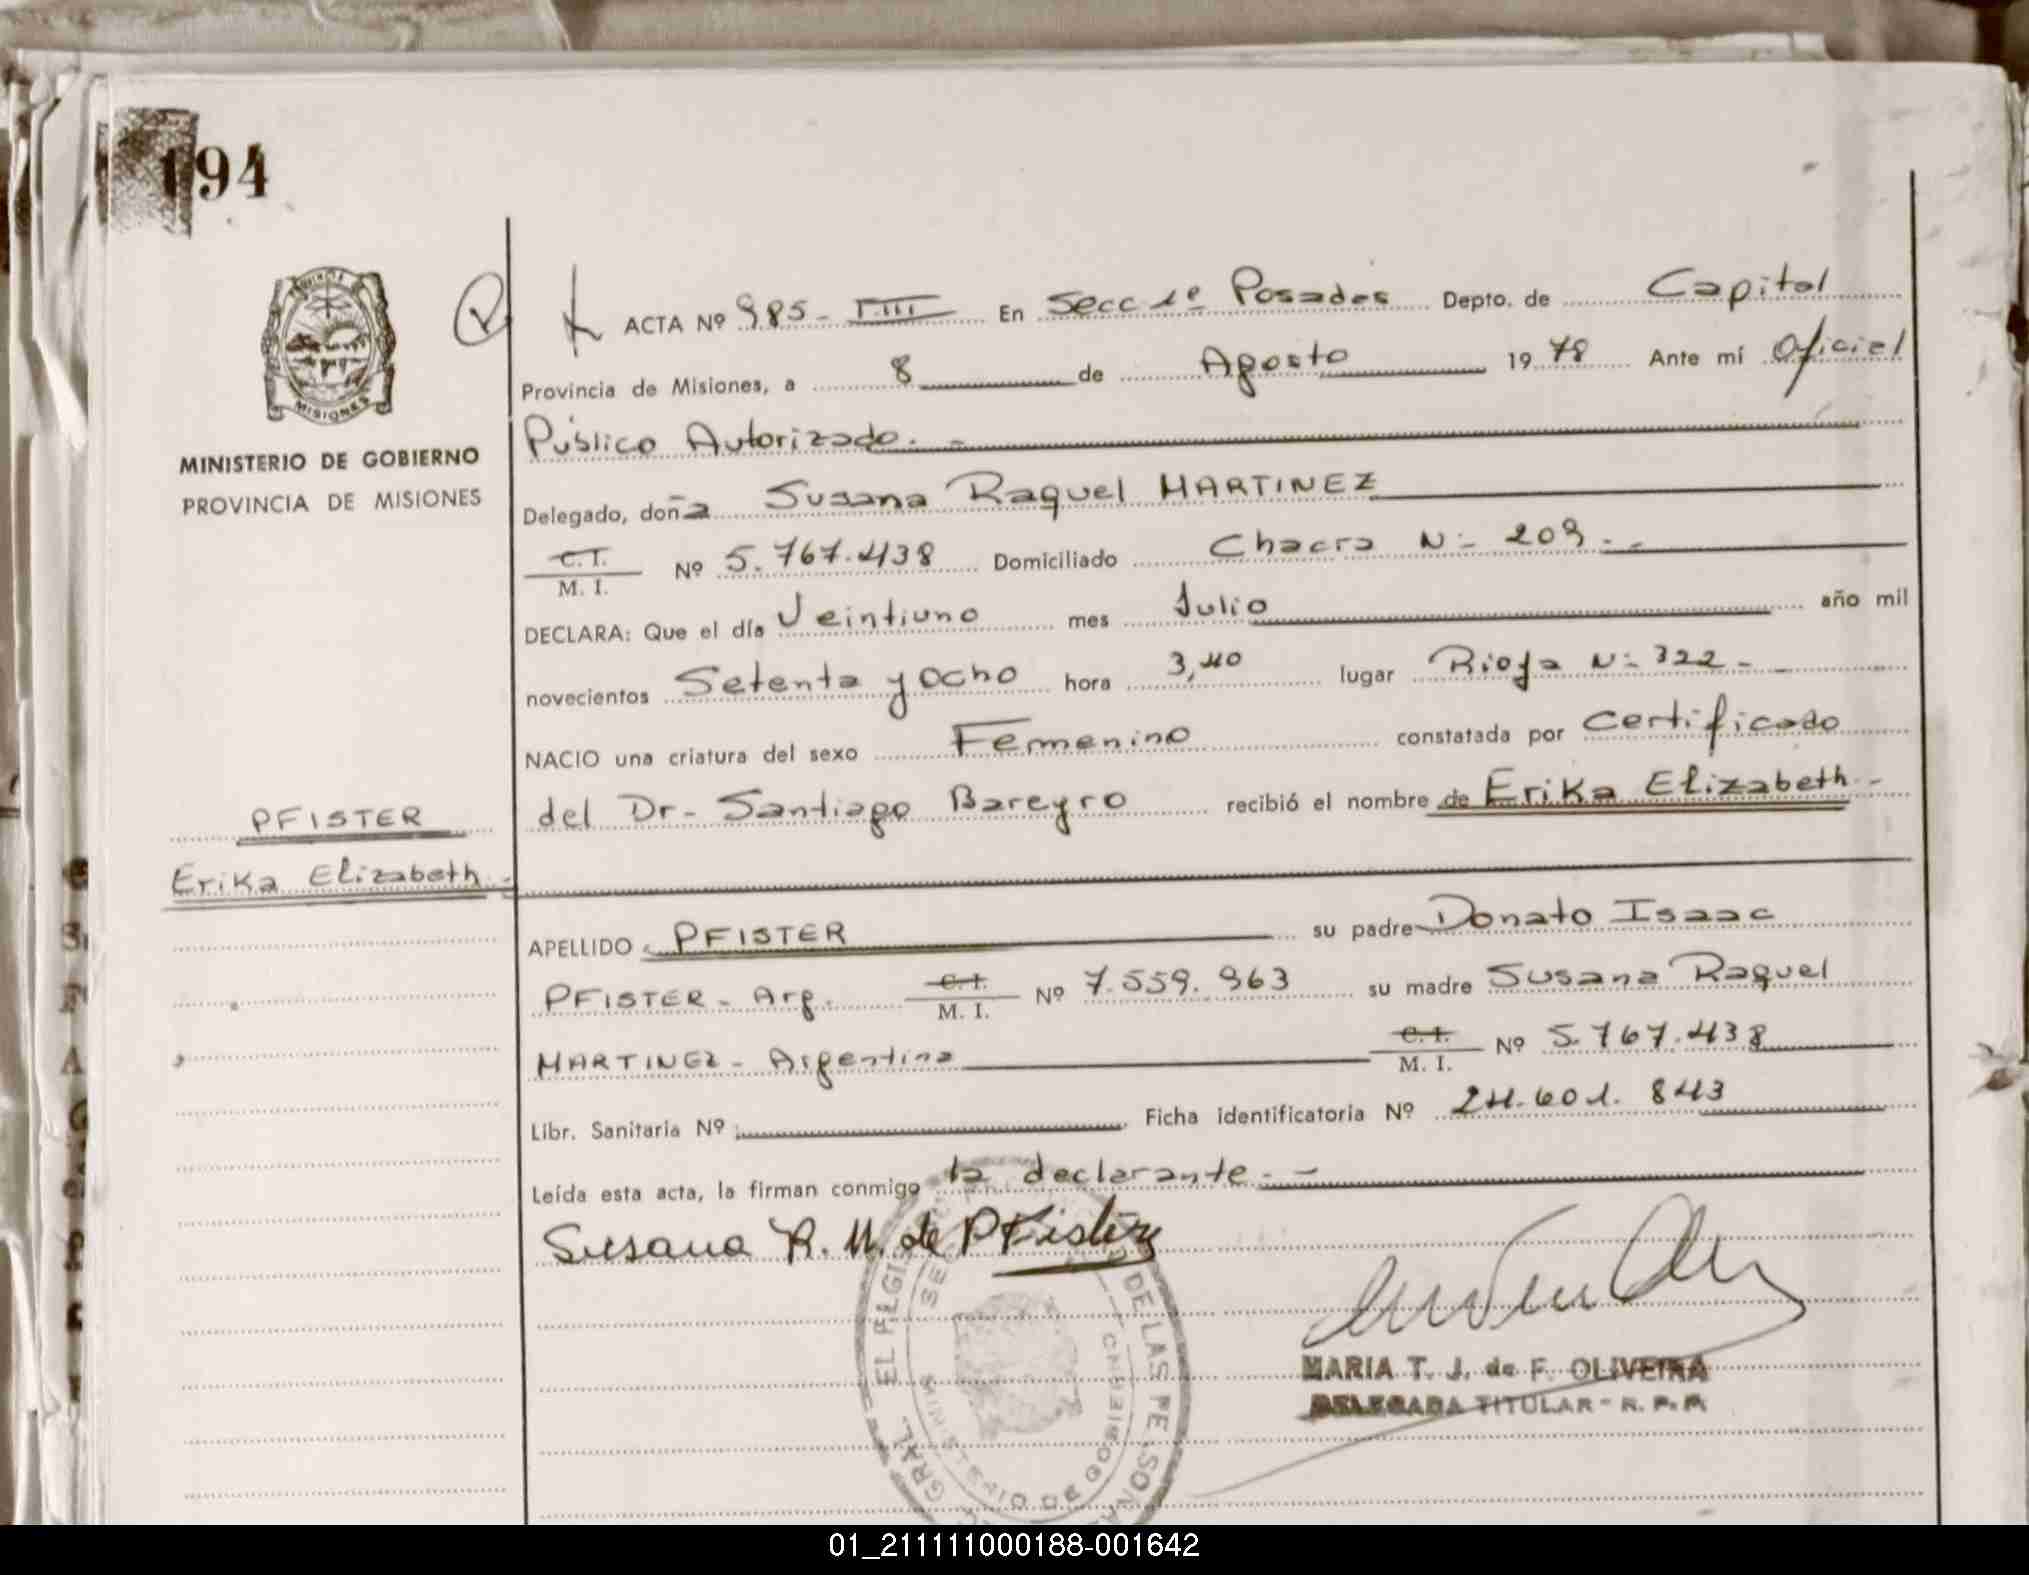 194
MISIONES
MINISTERIO DE GOBIERNO
PROVINCIA DE MISIONES
PFISTER
Erika Elizabeth.-
ACTA Nº 985- T.III En Secc 1º Posadas Depto. de Capital
Provincia de Misiones, a 8 de Agosto 1978 Ante mí Oficial
Público Autorizado.-
Delegado, doña Susana Raquel MARTINEZ
C.I.
M. I. Nº 5.767.438 Domiciliado Chacra N:- 209.-
DECLARA: Que el día Veintiuno mes Julio año mil
novecientos Setenta y Ocho hora 3,40 lugar Rioja N:- 322-
NACIO una criatura del sexo Femenino constatada por Certificado
del Dr- Santiago Bareyro recibió el nombre de Erika Elizabeth.-
APELLIDO PFISTER su padre Donato Isaac
PFISTER- Arg. C.I.
M. I. Nº 7.559.963 su madre Susana Raquel
MARTINEZ- Argentina C.I.
M. I. Nº 5.767.438
Libr. Sanitaria Nº Ficha identificatoria Nº 24.601.843
Leída esta acta, la firman conmigo la declarante.-
Susana R. M. de Pfister
MARIA T. J. de F. OLIVEIRA
DELEGADA TITULAR - R. P. P.
GRAL. DE LAS PE SON
MINISTERIO DE GOBIERNO
01_211111000188-001642